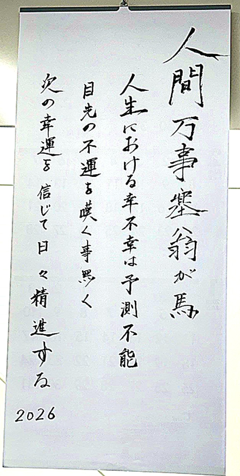 人間万事塞翁が馬
人生における幸不幸は予測不能
目先の不運を嘆く事無く
次の幸運を信じて日々精進する
2026